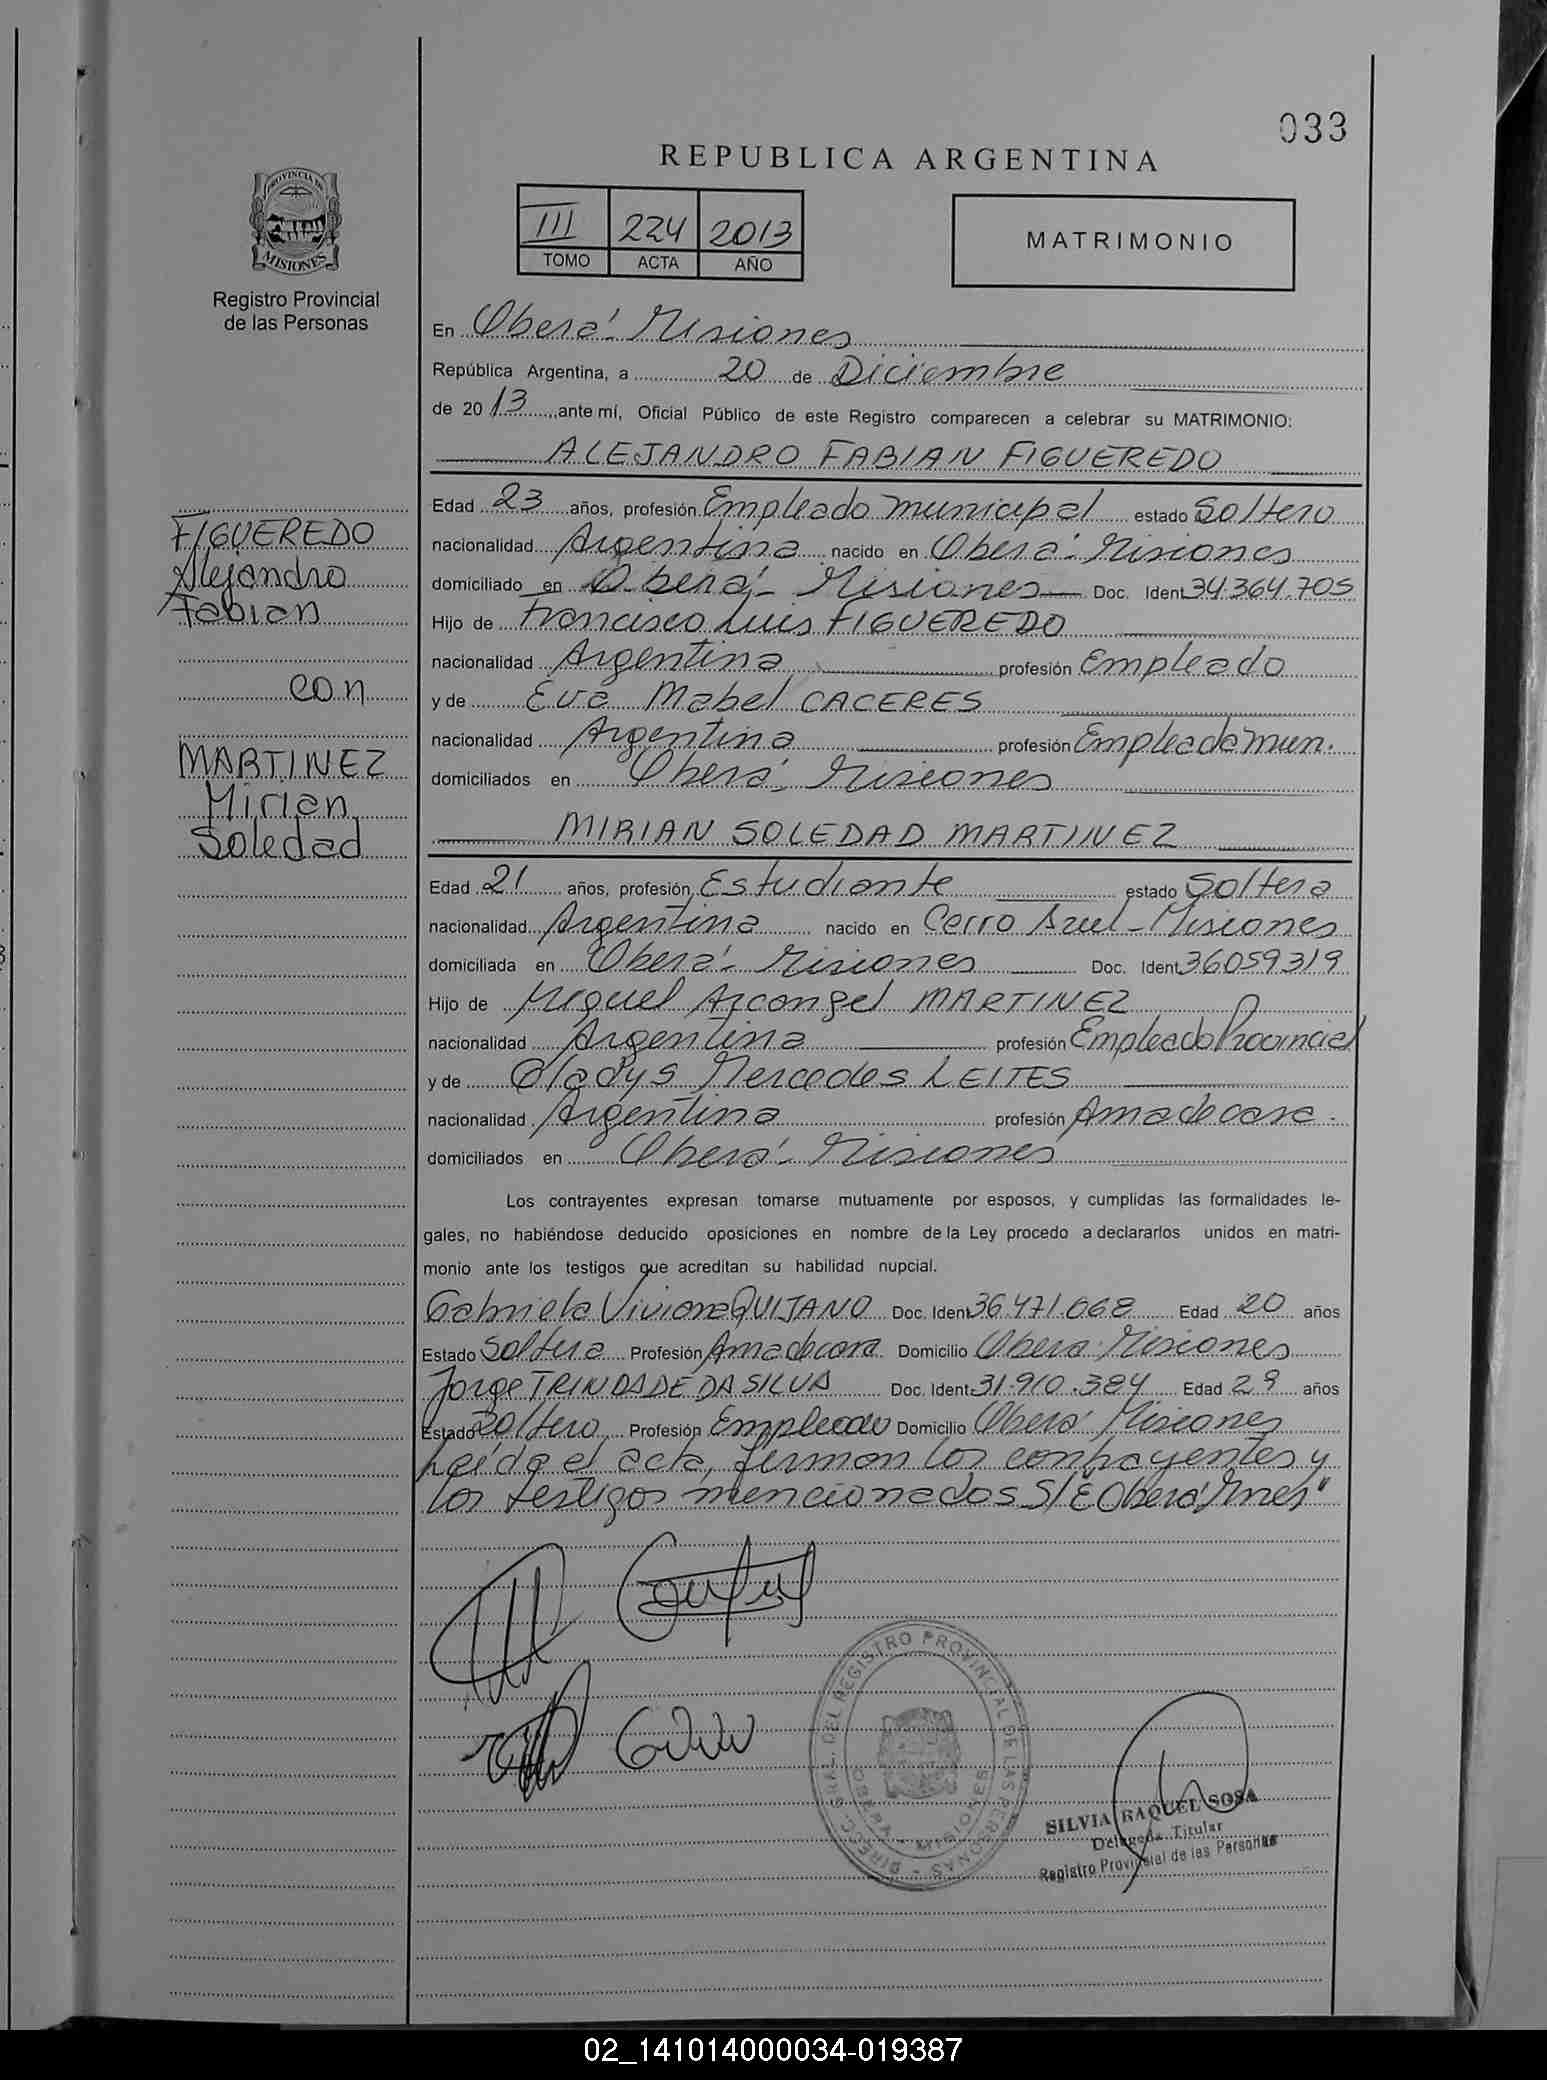 033
REPUBLICA ARGENTINA
PROVINCIA DE
MISIONES
Registro Provincial
de las Personas
III 224 2013
TOMO ACTA AÑO
MATRIMONIO
En Oberá - Misiones
República Argentina, a 20 de Diciembre
de 2013, ante mí, Oficial Público de este Registro comparecen a celebrar su MATRIMONIO:
ALEJANDRO FABIAN FIGUEREDO
FIGUEREDO
Alejandro
Fabian
con
MARTINEZ
Mirian
Soledad
Edad 23 años, profesión Empleado municipal estado Soltero
nacionalidad Argentina nacido en Oberá - Misiones
domiciliado en Oberá - Misiones Doc. Ident 34.364.705
Hijo de Francisco Luis FIGUEREDO
nacionalidad Argentina profesión Empleado
y de Eva Mabel CACERES
nacionalidad Argentina profesión Empleada mun.
domiciliados en Oberá - Misiones
MIRIAN SOLEDAD MARTINEZ
Edad 21 años, profesión Estudiante estado Soltera
nacionalidad Argentina nacido en Cerro Azul - Misiones
domiciliada en Oberá - Misiones Doc. Ident 36059319
Hijo de Miguel Arcangel MARTINEZ
nacionalidad Argentina profesión Empleado Provincial
y de Gladys Mercedes LEITES
nacionalidad Argentina profesión Ama de casa.
domiciliados en Oberá - Misiones
Los contrayentes expresan tomarse mutuamente por esposos, y cumplidas las formalidades le-
gales, no habiéndose deducido oposiciones en nombre de la Ley procedo a declararlos unidos en matri-
monio ante los testigos que acreditan su habilidad nupcial.
Gabriela Viviana QUIJANO Doc. Ident 36.471.068 Edad 20 años
Estado Soltera Profesión Ama de casa Domicilio Oberá - Misiones
Jorge TRINDADE DA SILVA Doc. Ident 31.910.384 Edad 29 años
Estado Soltero Profesión Empleado Domicilio Oberá Misiones
Leída el acta, firman los contrayentes y
los testigos mencionados S/E Oberá Mnes"
DIRECC. GRAL. DEL REGISTRO PROVINCIAL DE LAS PERSONAS
OBERA - MISIONES
SILVIA RAQUEL SOSA
Delegada Titular
Registro Provincial de las Personas
02_141014000034-019387